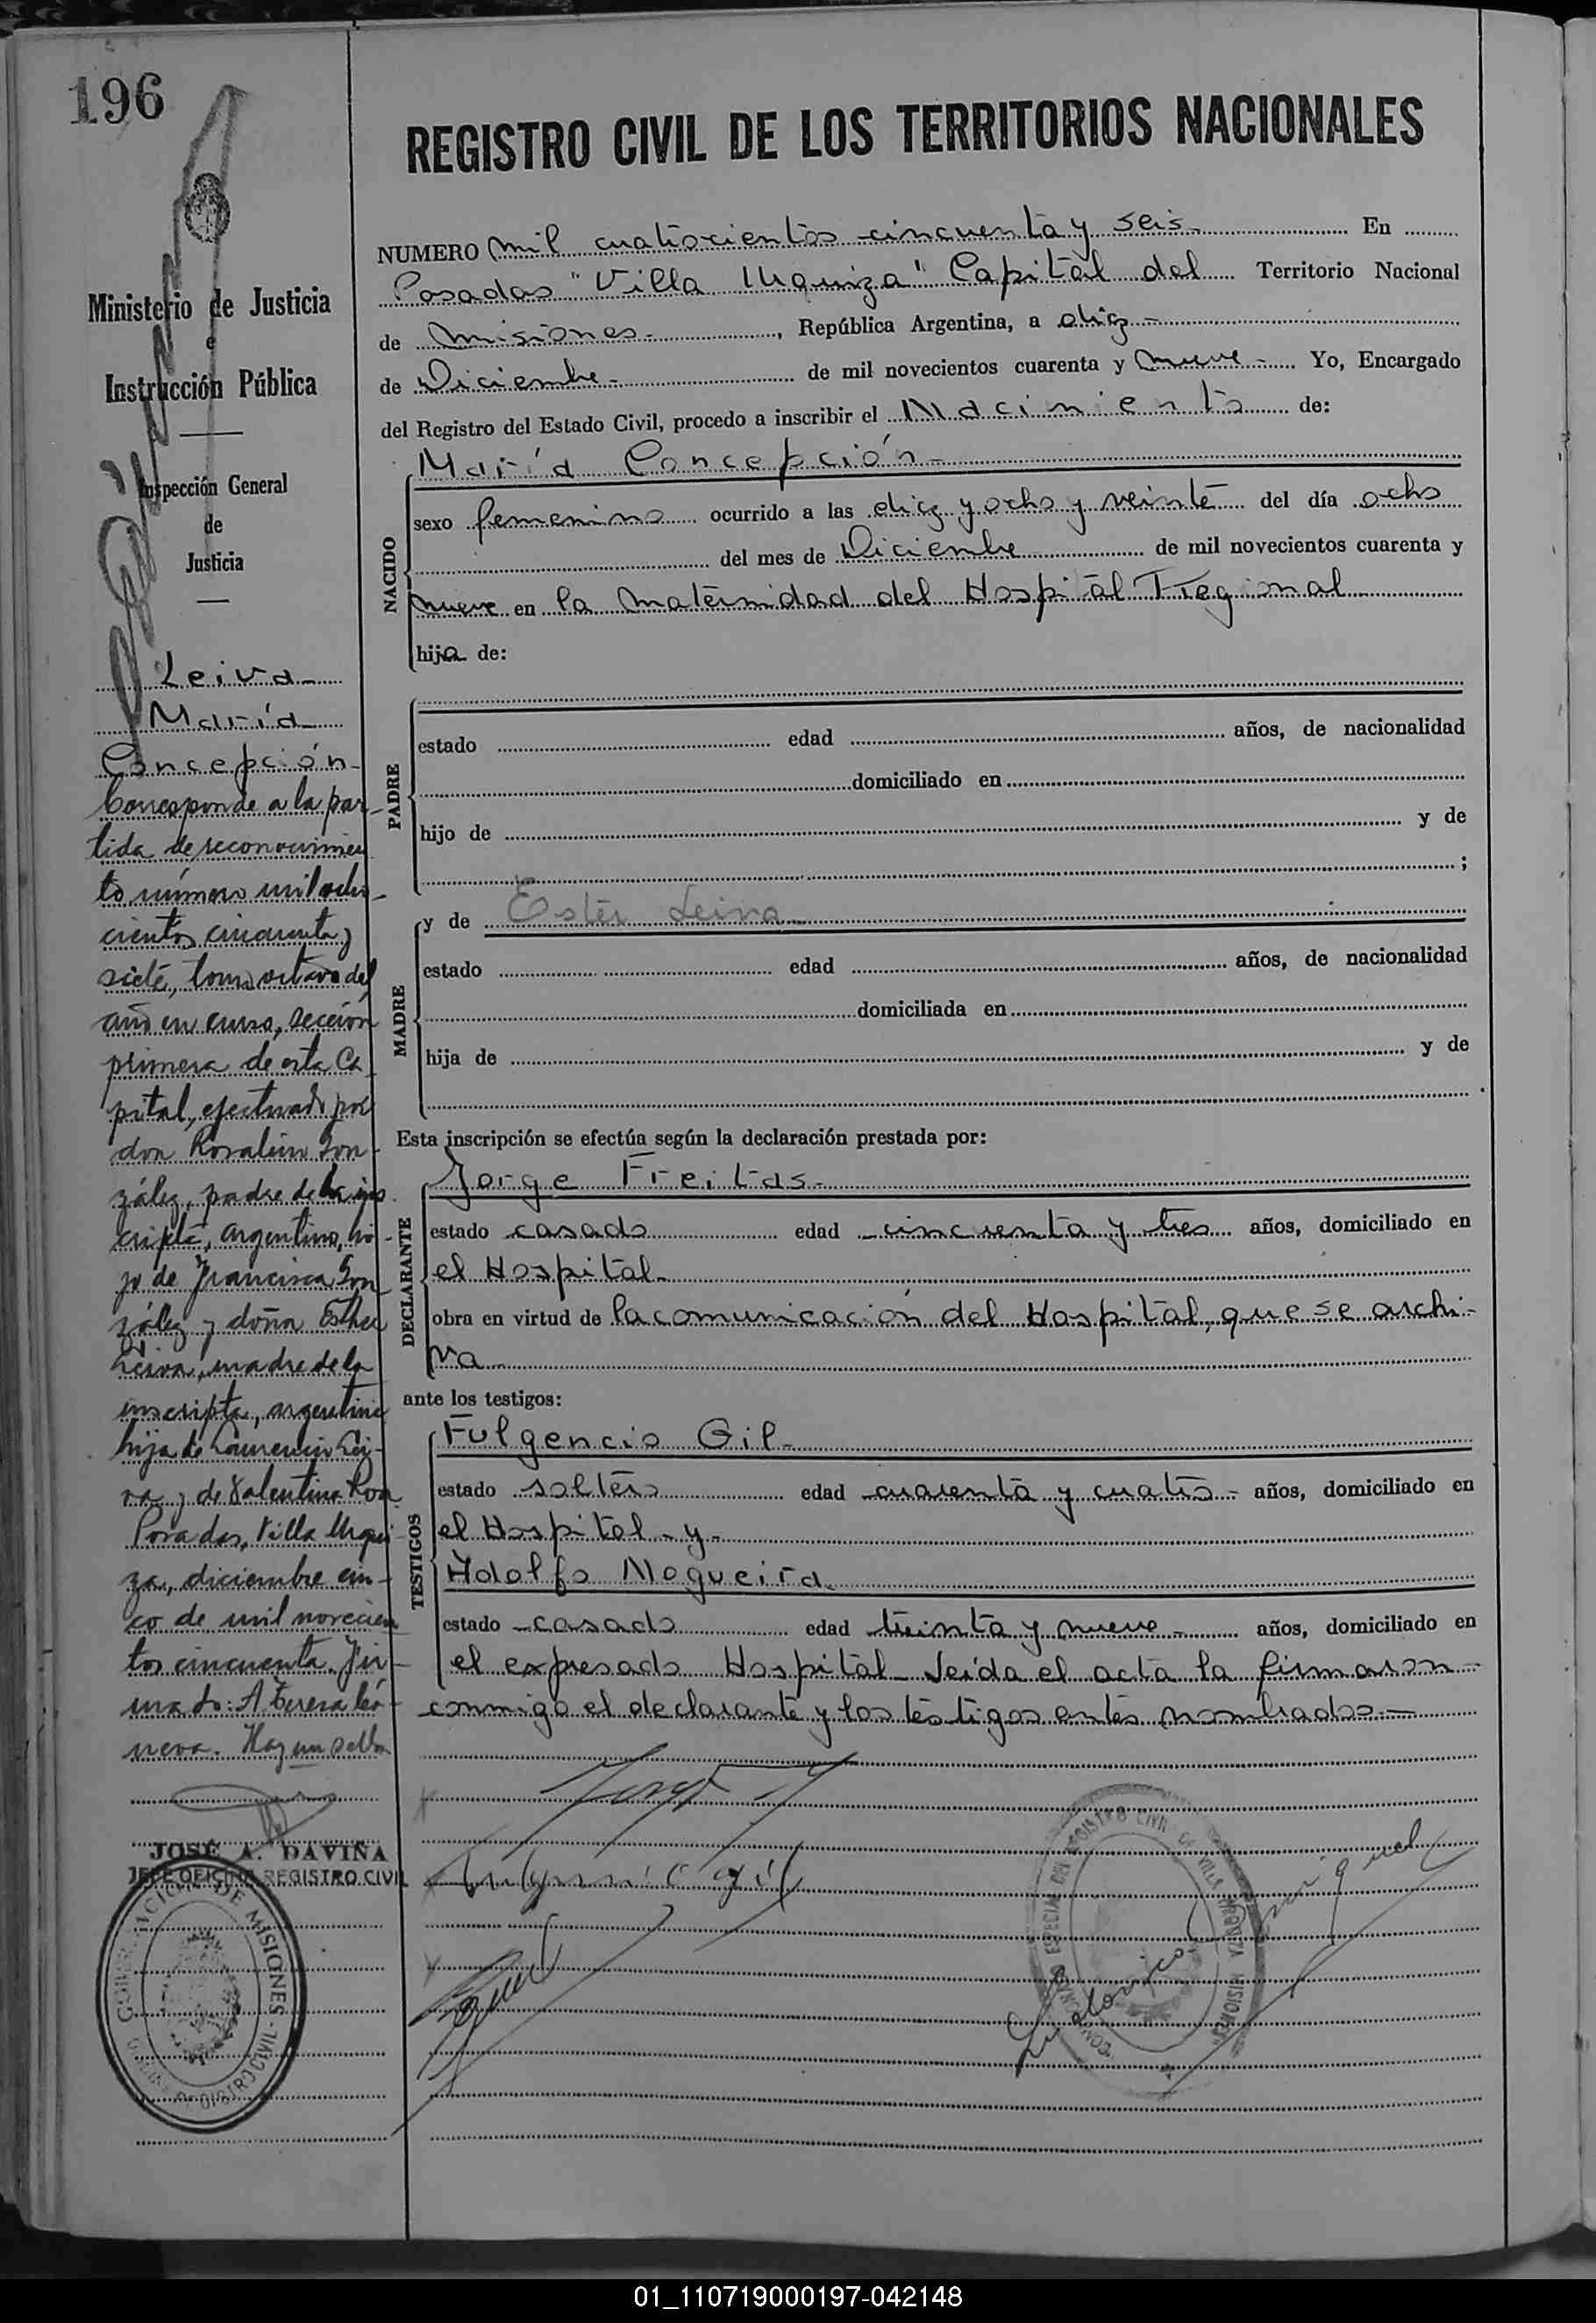 196
REGISTRO CIVIL DE LOS TERRITORIOS NACIONALES
NUMERO mil cuatrocientos cincuenta y seis En
Posadas "Villa Urquiza" Capital del Territorio Nacional
de Misiones, República Argentina, a diez
de Diciembre de mil novecientos cuarenta y nueve Yo, Encargado
del Registro del Estado Civil, procedo a inscribir el Nacimiento de:
NACIDO
María Concepción
sexo femenino ocurrido a las diez y ocho y veinte del día ocho
del mes de Diciembre de mil novecientos cuarenta y
nueve en la Maternidad del Hospital Regional
hija de:
PADRE
estado edad años, de nacionalidad
domiciliado en
hijo de y de
;
MADRE
y de Ester Leiva
estado edad años, de nacionalidad
domiciliada en
hija de y de
Esta inscripción se efectúa según la declaración prestada por:
DECLARANTE
Jorge Freitas
estado casado edad cincuenta y tres años, domiciliado en
el Hospital
obra en virtud de la comunicación del Hospital, que se archi-
va
ante los testigos:
TESTIGOS
Fulgencio Gil
estado soltero edad cuarenta y cuatro años, domiciliado en
el Hospital y
Adolfo Nogueira
estado casado edad treinta y nueve años, domiciliado en
el expresado Hospital Leída el acta la firmaron
conmigo el declarante y los testigos antes nombrados
Ministerio de Justicia
e
Instrucción Pública
Inspección General
de
Justicia
Leiva
María
Concepción
Corresponde a la par-
tida de reconocimien
to número mil ocho-
cientos cincuenta y
siete, tomo octavo del
año en curso, sección
primera de esta Ca-
pital, efectuado por
don Rosalino Gon-
zález, padre de la ins
cripta, argentino, hi-
jo de Francisca Gon
zález y doña Esther
Leiva, madre de la
inscripta, argentina
hija de Laurencio Lei-
va y de Valentina
Posadas, Villa Urqui-
za, diciembre cin-
co de mil novecien
tos cincuenta. Fir-
mado: A
Hay un sello
JOSÉ A. DAVIÑA
JEFE OFICINA REGISTRO CIVIL
DE MISIONES
REGISTRO CIVIL
REGISTRO CIVIL DE VILLA URQUIZA MISIONES
01_110719000197-042148